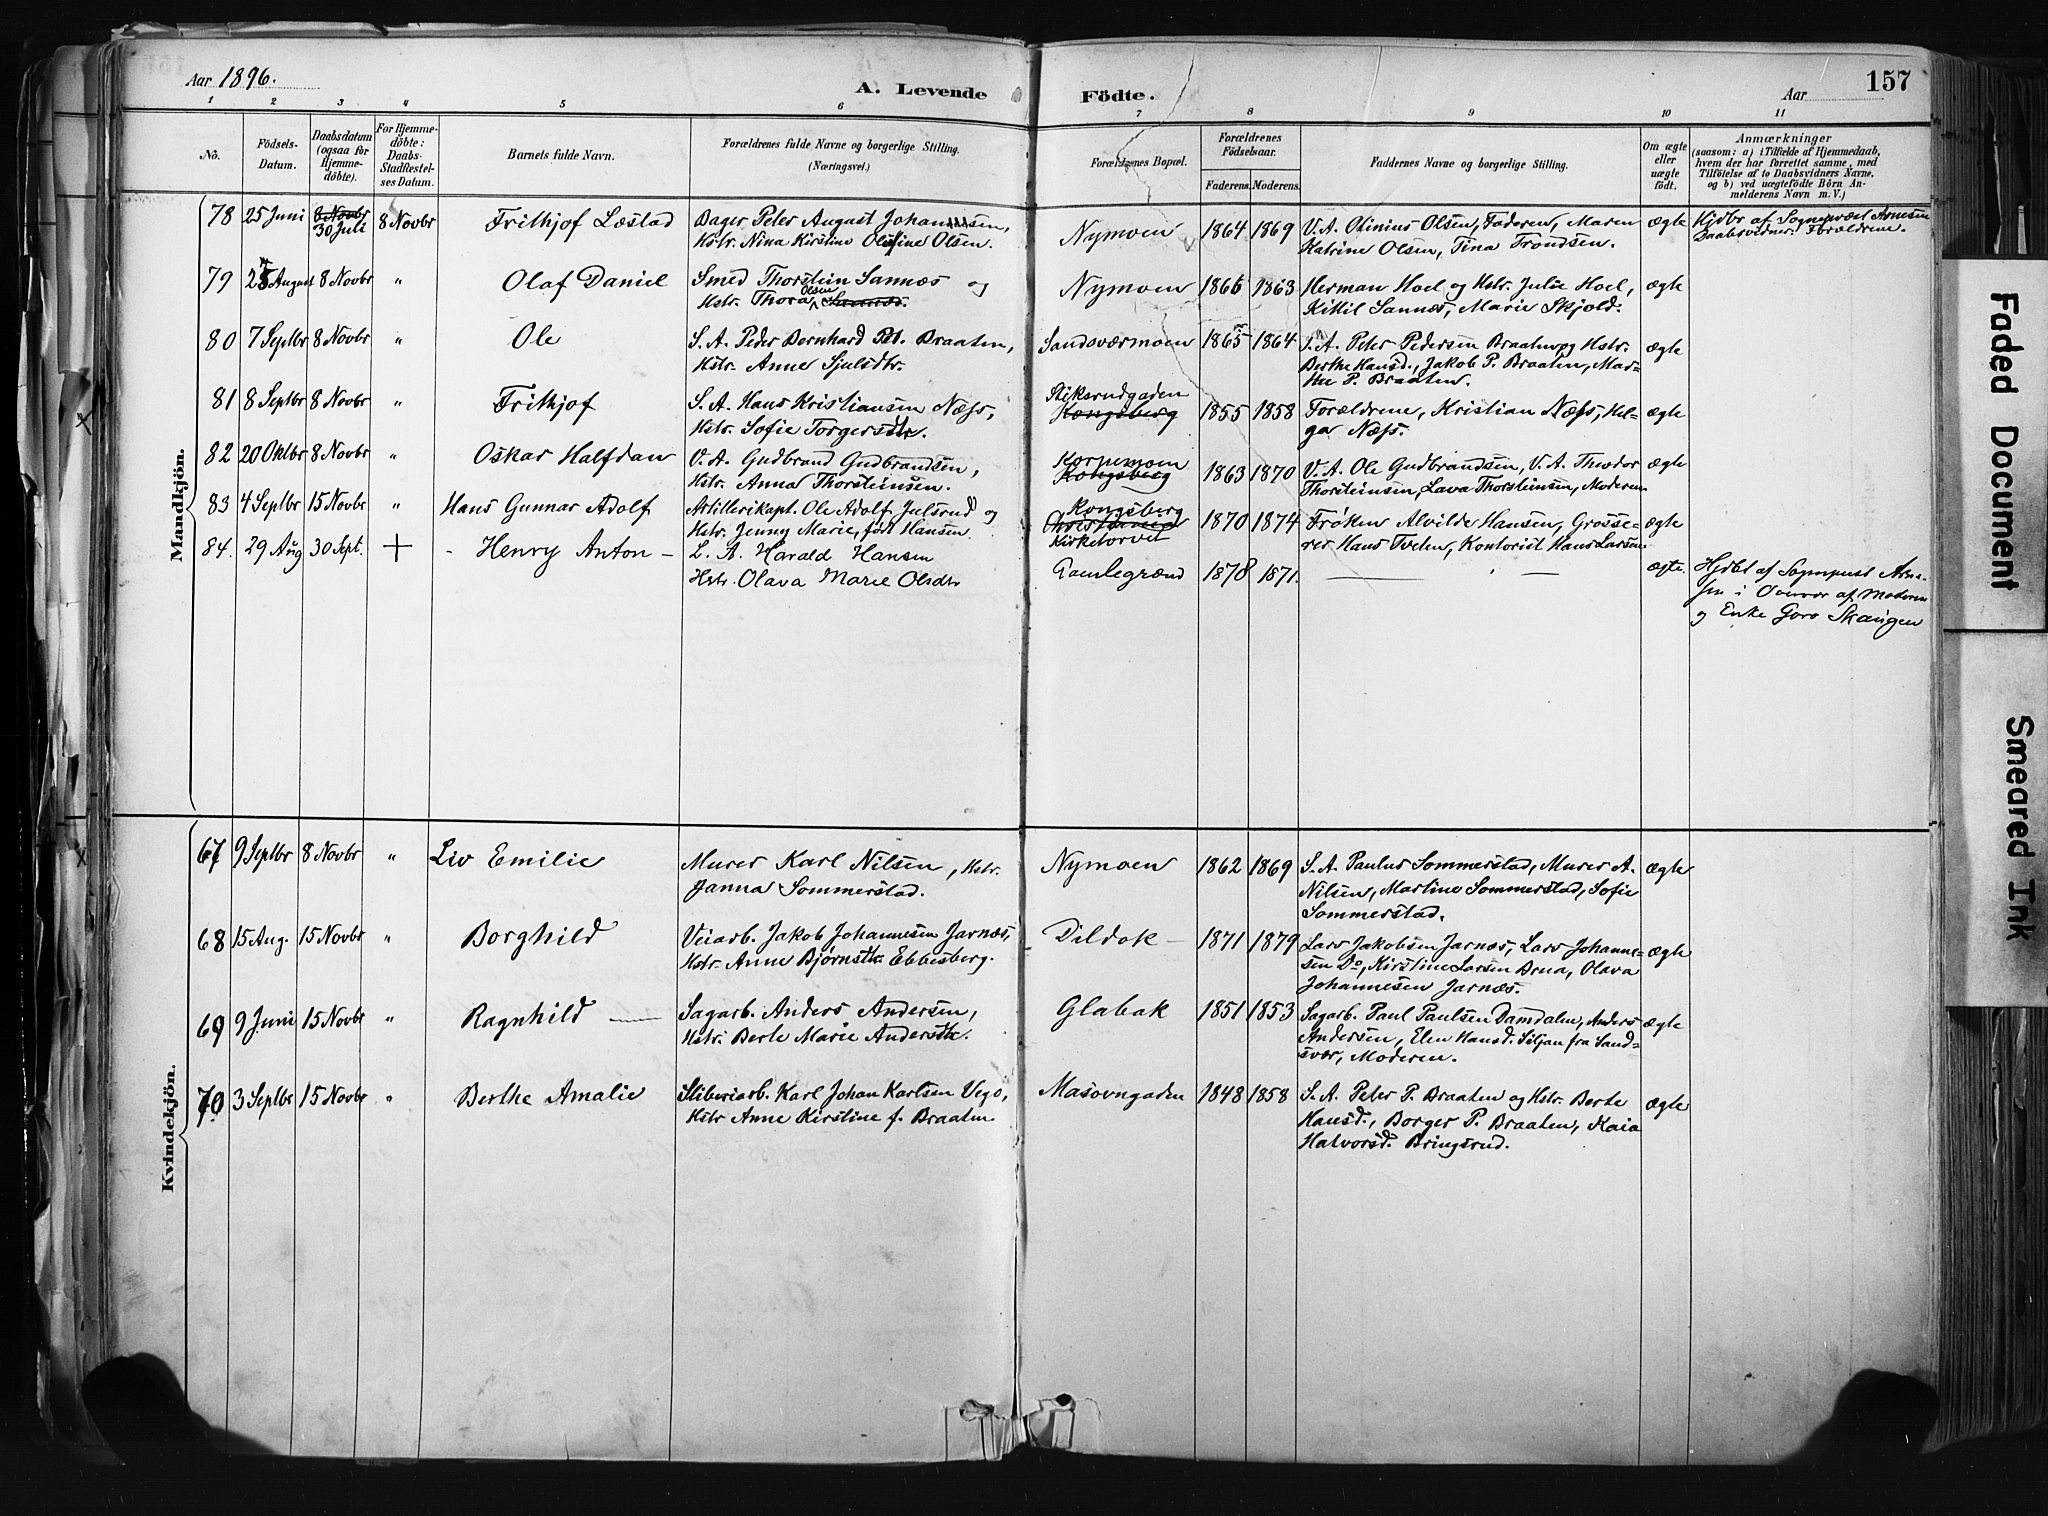 Aar 1896.
A. Levende Födte.
Aar
157
1 2 3 4 5 6 7 8 9 10 11
No.
Födsels-Datum.
Daabsdatum (ogsaa for Hjemmedöbte).
For Hjemmedöbte: Daabs-Stadfæstelses Datum.
Barnets fulde Navn.
Forældrenes fulde Navne og borgerlige Stilling. (Næringsvei.)
Forældrenes Bopæl.
Forældrenes Födselsaar.
Faderens. Moderens.
Faddernes Navne og borgerlige Stilling.
Om ægte eller uægte födt.
Anmærkninger
(saasom: a) i Tilfælde af Hjemmedaab, hvem der har forrettet samme, med Tilföielse af to Daabsvidners Navne, og b) ved uægtefödte Börn Anmelderens Navn m. V.)
Mandkjön.
78 25 Juni 8 Novbr 30 Juli 8 Novbr Frithjof Læstad Bager Peter August Johannesen, Nymoen 1864 1869 V. A. Otinius Olsen, Faderen, Maren ægte Hjdbt af Sognepræst Arnesen
Hstr. Nina Kirstine Olsine Olsen. Katrine Olsen, Tina Trondsen. Daabsvidner: Forældrene.
79 25 August 8 Novbr " Olaf Daniel Smed Thorstein Sannæs og Nymoen 1866 1863 Herman Hoel og Hstr. Julie Hoel, ægte
Hstr. Thora Olsen Sannæs. Kittil Sannæs, Marie Skjold.
80 7 Septbr 8 Novbr " Ole S. A. Peder Bernhard Pet. Braaten, Sandsværmoen 1865 1864 S. A. Peter Pedersen Braaten og Hstr. ægte
Hstr. Anne Sjulsdtr. Berthe Hansd., Jakob P. Braaten, Mar-
the P. Braaten.
81 8 Septbr 8 Novbr " Frithjof S. A. Hans Kristiansen Næss, Stiksrudgaden Kongsberg 1855 1858 Forældrene, Kristian Næss, Hel- ægte
Hstr. Sofie Torgersdtr. ga Næss.
82 20 Oktbr 8 Novbr " Oskar Halfdan V. A. Gudbrand Gudbrandsen, Korpemoen Kongsberg 1863 1870 V. A. Ole Gudbrandsen, V. A. Theodor ægte
Hstr. Anna Thorsteinsen. Thorsteinsen, Lava Thorsteinsen, Moderen
83 4 Septbr 15 Novbr " Hans Gunnar Adolf Artillerikapt. Ole Adolf Julsrud og Kongsberg Kirketorvet 1870 1874 Frøken Alvilde Hansen, Grosse- ægte
Hstr. Jenny Marie, født Hansen rer Hans Tveten, Kontorist Hans Larsen
84. 29 Aug 30 Sept. + - Henry Anton - L. A. Harald Hansen Gamlegrænd 1878 1871. — — ægte. Hjdbt af Sognepræst Arne-
Hstr. Olava Marie Olsdtr sen i Overvær af Moderen
og Enke Goro Skaugen
Kvindekjön.
67 9 Septbr 8 Novbr " Liv Emilie Murer Karl Nilsen, Hstr. Nymoen 1862 1869 S. A. Paulus Sommerstad, Murer A. ægte
Janna Sommerstad. Nilsen, Martine Sommerstad, Sofie
Sommerstad.
68 15 Aug. 15 Novbr " Borghild Veiarb. Jakob Johannesen Jarnæs, Dildok - 1871 1879 Lars Jakobsen Jarnæs, Lars Johanne- ægte
Hstr. Anne Bjørnsdtr Ebbesberg. sen Do, Kirstine Larsen Brua, Olava
Johannesen Jarnæs.
69 9 Juni 15 Novbr " Ragnhild — Sagarb. Anders Andersen, Glabak 1851 1853 Sagarb. Paul Paulsen Damdalen, Anders ægte
Hstr. Berte Marie Andersdtr. Andersen, Elen Hansd. Siljan fra Sand-
svær, Moderen.
70 3 Septbr 15 Novbr " Berthe Amalie Sliberiarb. Karl Johan Karlsen Vegs, Masovngaden 1848 1858 S. A. Peter P. Braaten og Hstr. Berte ægte
Hstr Anne Kirstine f. Braaten Hansd., Borger P. Braaten, Kaia
Halvorsd. Bringsrud.
Faded Document
Smeared Ink